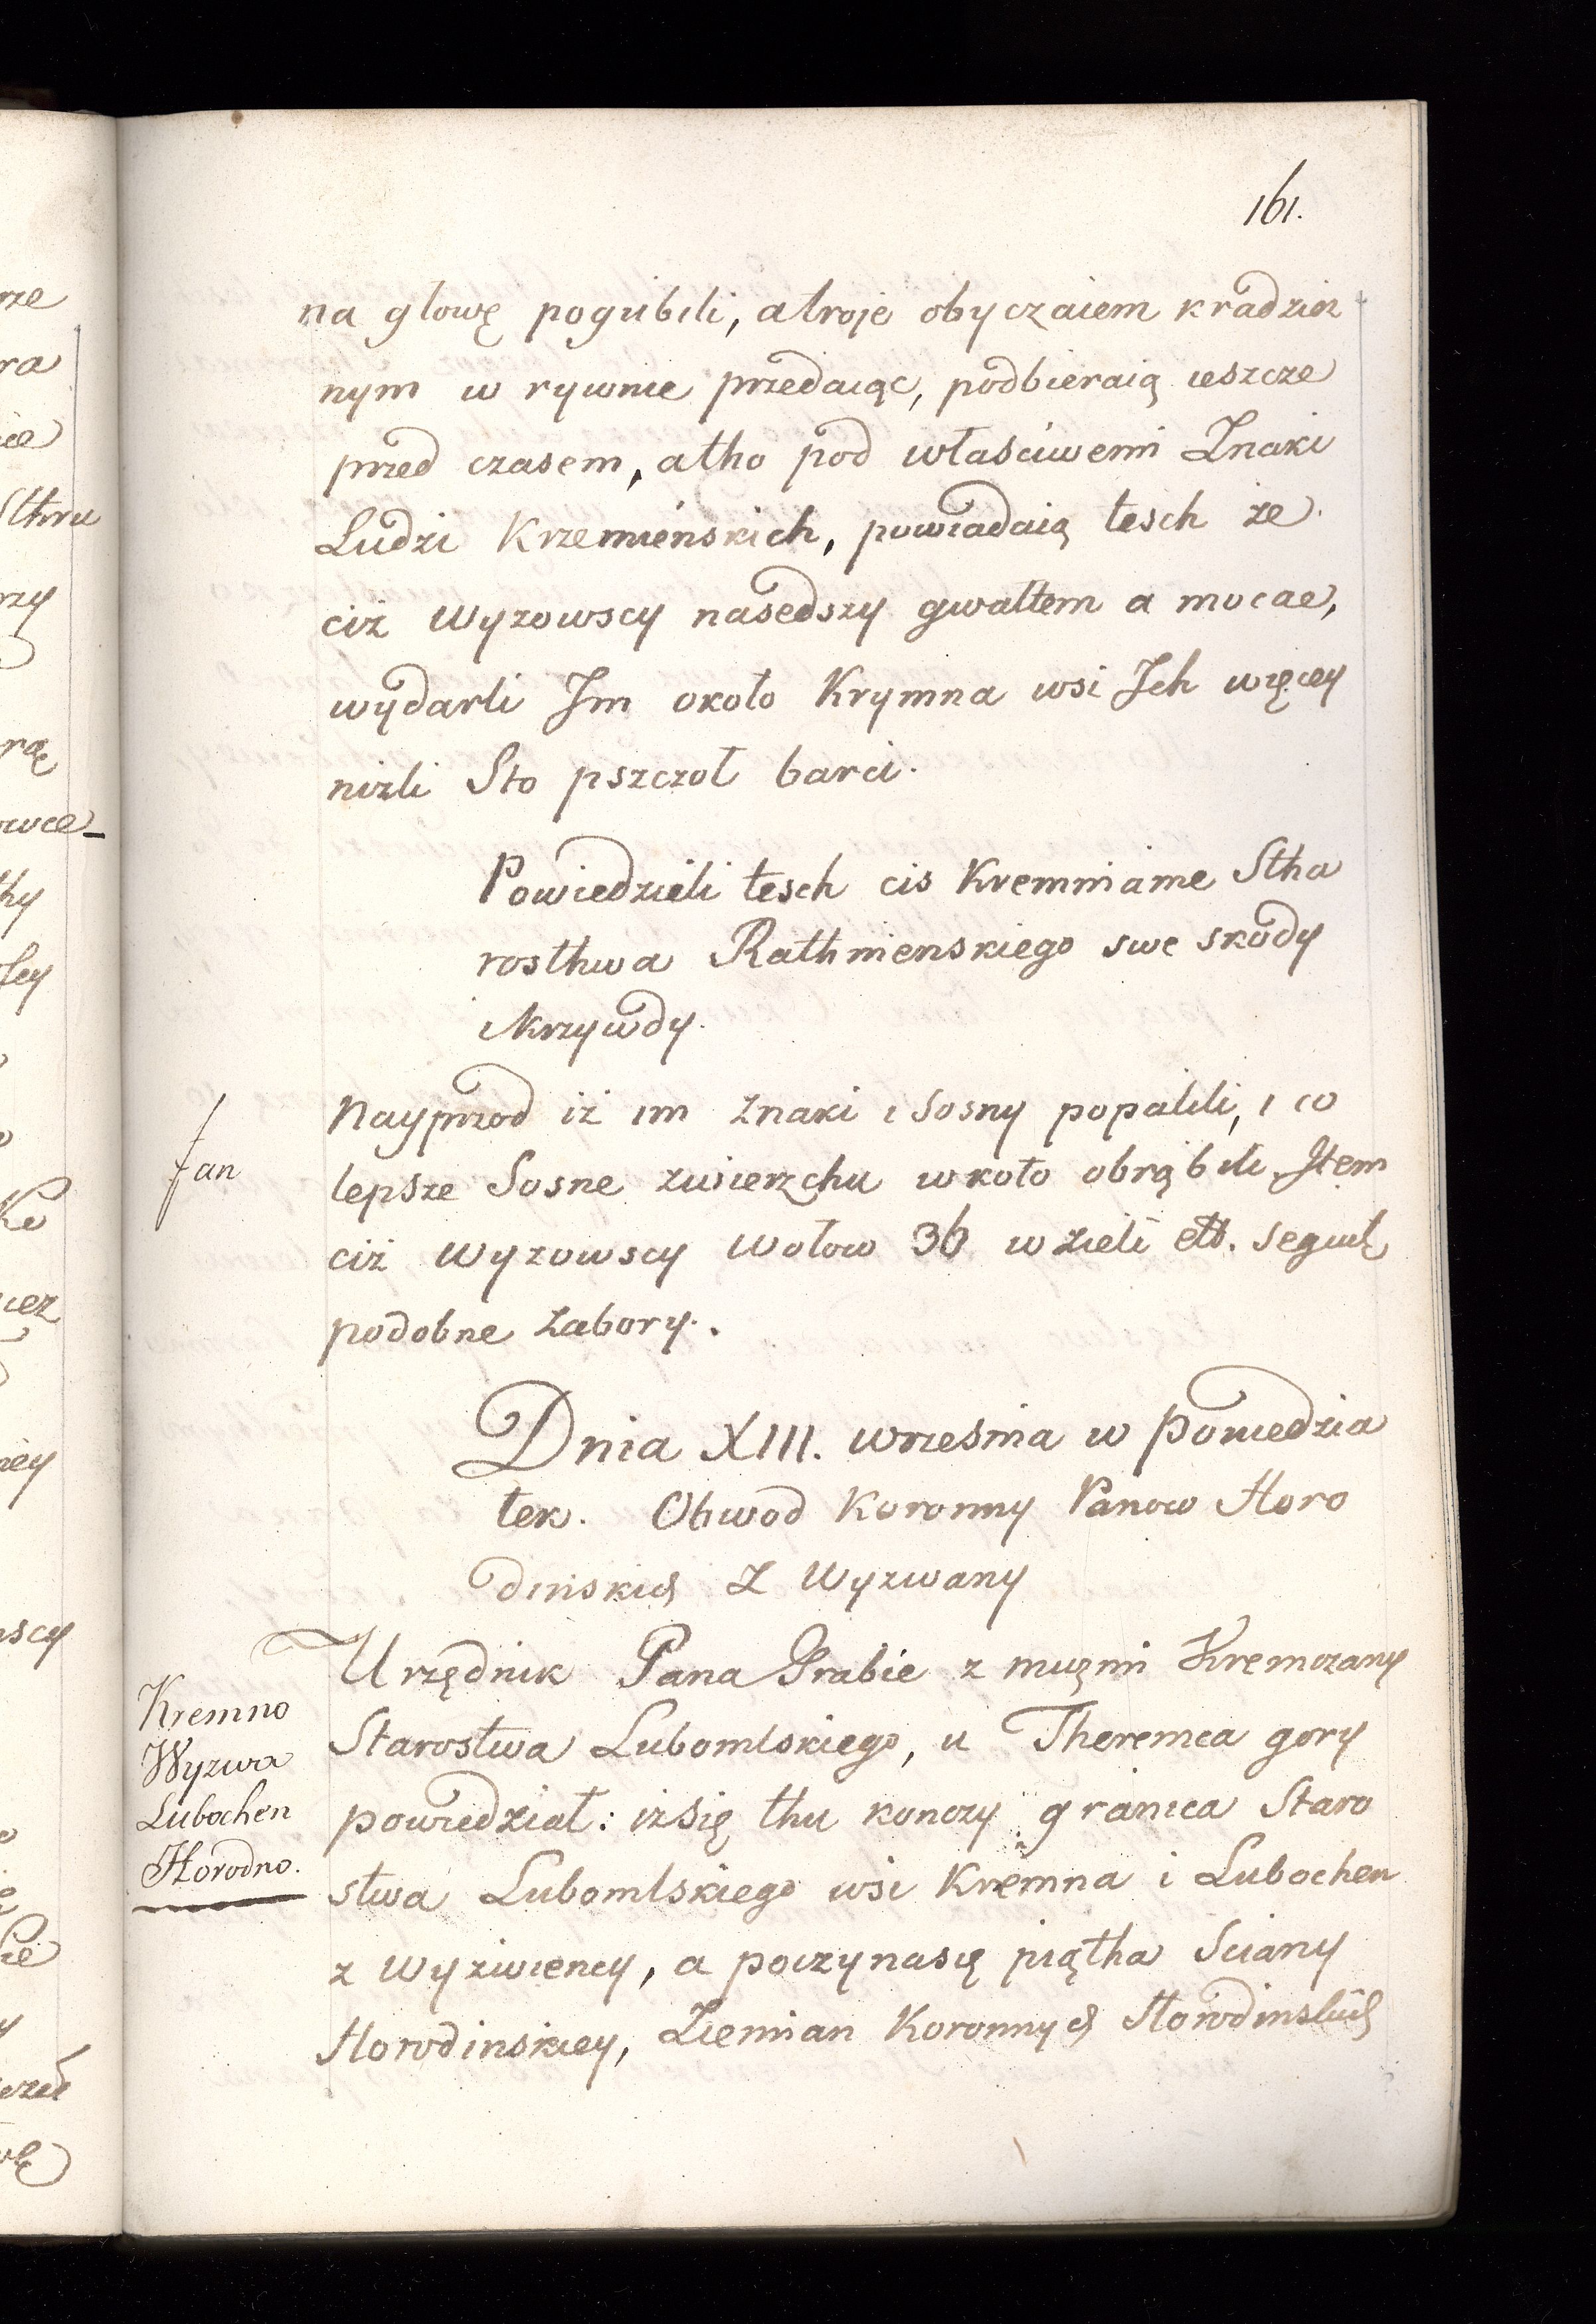 161.
na głowę pogubili, atroje obyczaiem kradzież
nym w rywnie przedaiąc, podbieraią ieszcze
przed czasem, atho pod właściwemi Znaki
Ludzi Krzemieńskich, powiadaią tesch że
ciż Wyzowscy nasedszy gwałtem a mocae,
wydarli Im około Krymna wsi Ich więcey
niżli Sto pszczoł barci.
Powiedzieli tesch cis Kremniame Stha
rosthwa Rathnienskiego swe skody
ikrzywdy.
Nayprzod iż im Znaki i Sosny popalili, i co
lepsze Sosne zwierzchu wkoło obrąbili Item
ciż Wyzowscy Wołow 36 wzieli ett.
podobne Zabory.
Dnia XIII. wrzesnia w poniedzia
łek. Obwod Koronny Panow Horo
dinskich Z Wyzwany
Urzędnik Pana Grabie z mużmi Kremczany
Kremno
Wyzwa
Lubochen
Horodno.
Starostwa Lubomlskiego, u Theremca gory
powiedział: iżsię thu konczy granica Staro
stwa Lubomlskiego wsi Kremna i Lubochen
z Wyżwiency, a poczynasię piątha Sciany
Horodinskiey, Ziemian Koronnych Horodinskich